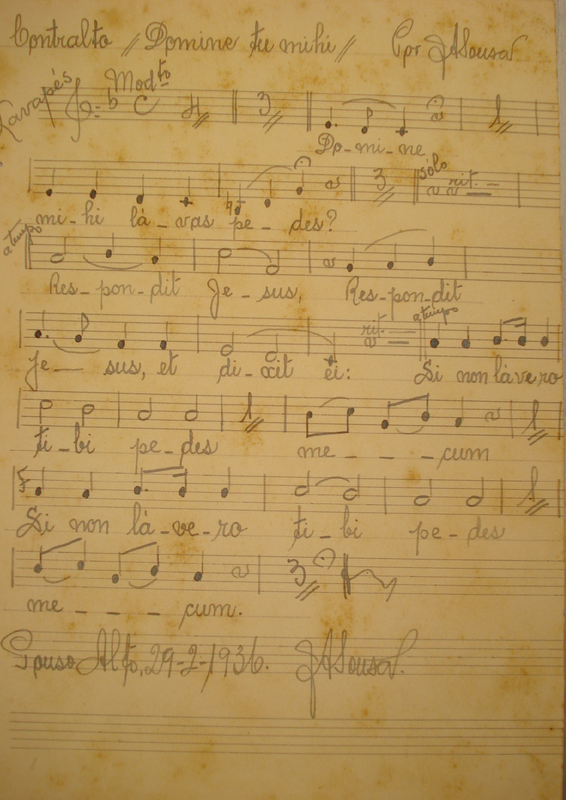 Contralto // Domine tu mihi // Por JASousa
Lavapés Modto C 3
Do-mi-ne
sólo
3 rit.
mi-hi lá-vas pe-des?
a tempo
Res-pon-dit Je-sus, Res-pon-dit
rit. a tempo
Je- sus, et di-xit ei: Si non láve ro
ti-bi pe-des me- - - cum
F
Si non lá-ve-ro ti-bi pe-des
3
me - - - cum.
Pouso Alto, 29-2-1936. JASousa.